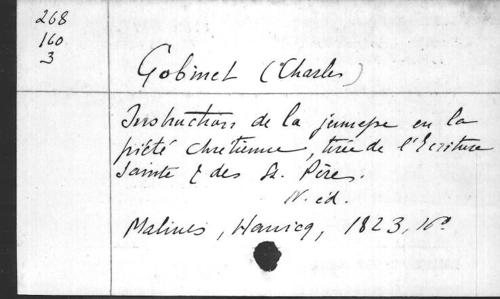 268
160
3
Gobinet (Charles)
Instruction de la jeunesse en la
piété chrétienne, tirée de l'Ecriture
Sainte & des Sts. Pères.
N. éd.
Malines, Hanicq, 1823, 16°